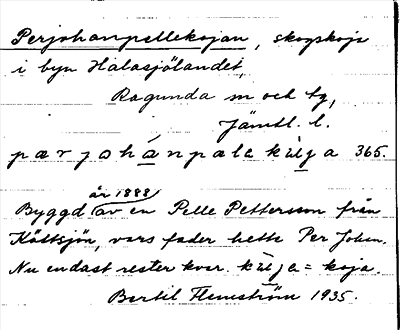 Perjohanpellekojan, skogskoja
i byn Halasjölandet,
Ragunda sn och tg,
Jämtl. l.
pærjohánpælakúlja 365.
år 1888
Byggd av en Pelle Pettersson från
Köttsjön, vars fader hette Per Johan.
Nu endast rester kvar. kúlja = koja.
Bertil Flemström 1935.